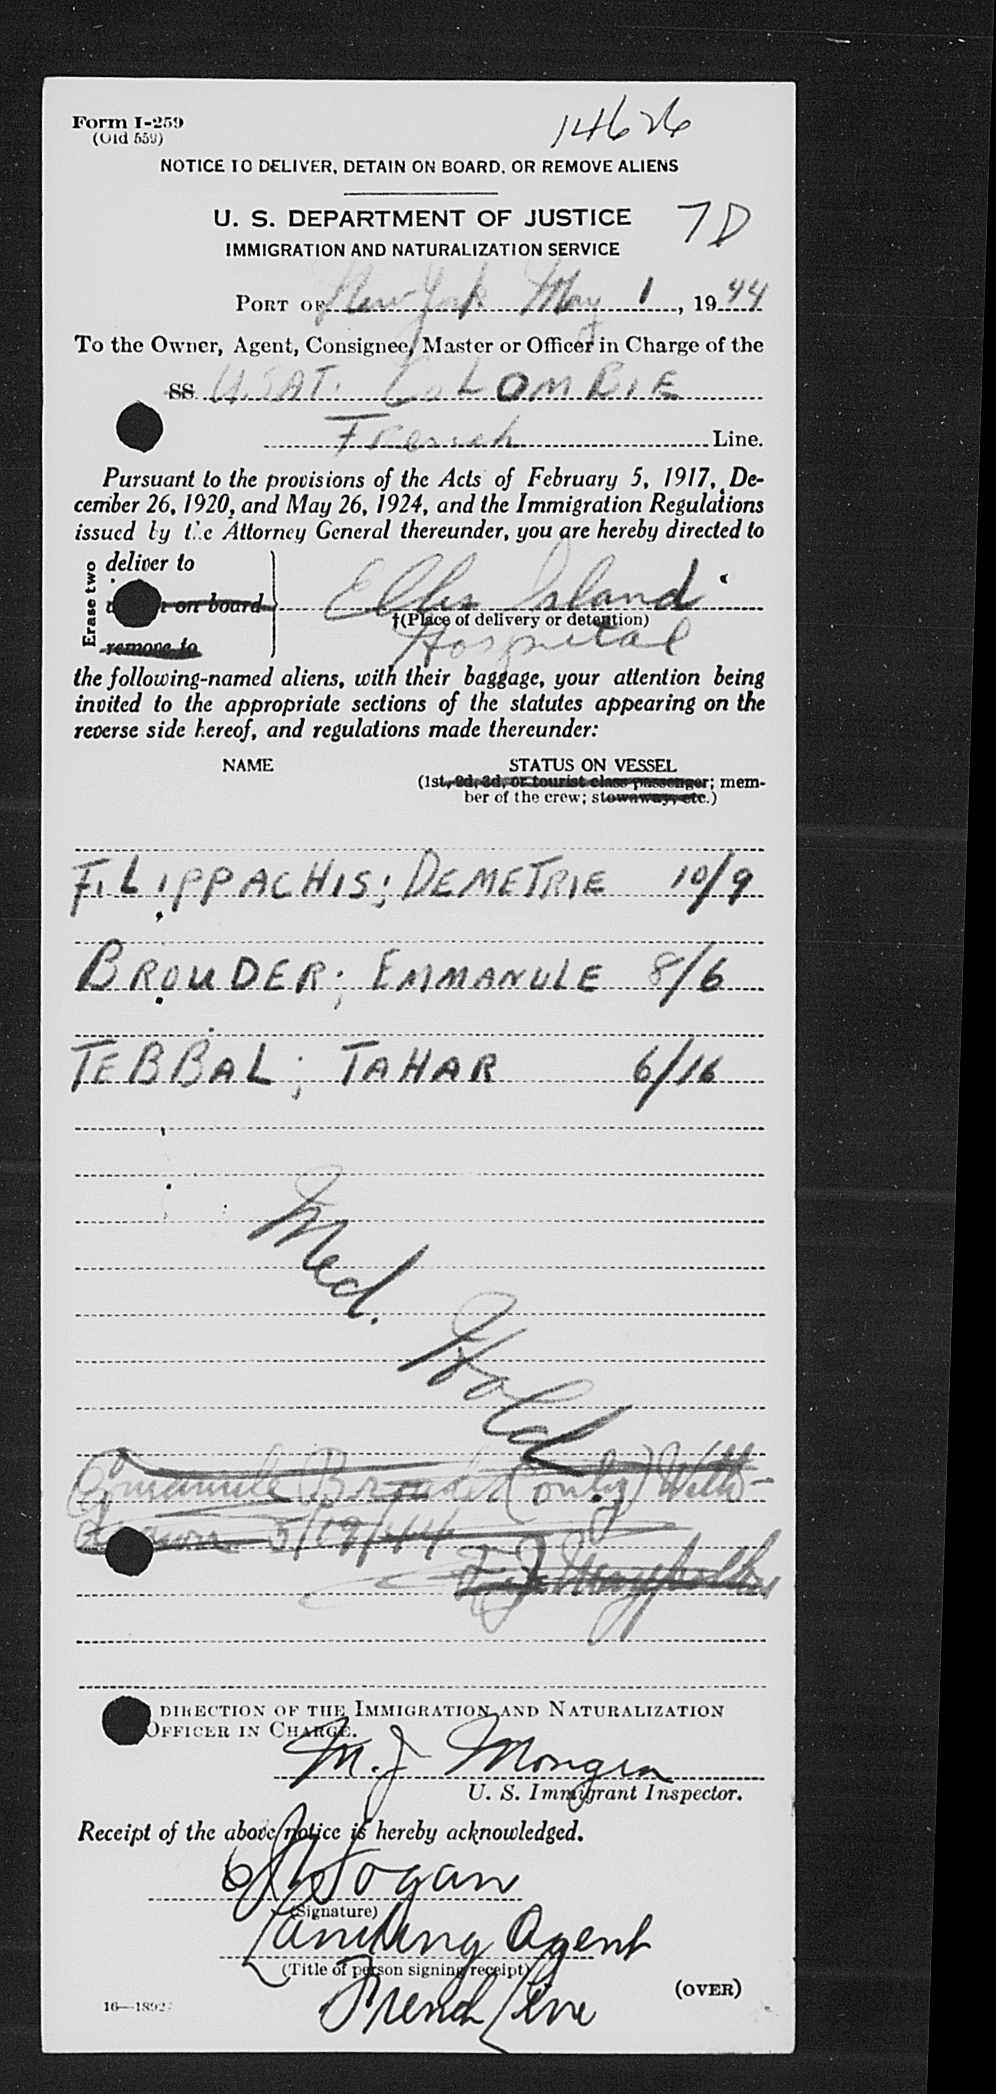 Form I-259
(Old 559)
14626
NOTICE TO DELIVER, DETAIN ON BOARD, OR REMOVE ALIENS
U. S. DEPARTMENT OF JUSTICE
7D
IMMIGRATION AND NATURALIZATION SERVICE
PORT OF New York May 1, 1944
To the Owner, Agent, Consignee, Master or Officer in Charge of the
SS U.S.A.T. COLOMBIE
French Line.
Pursuant to the provisions of the Acts of February 5, 1917, De-
cember 26, 1920, and May 26, 1924, and the Immigration Regulations
issued by the Attorney General thereunder, you are hereby directed to
Erase two
deliver to
on board
remove to
Ellis Island
†(Place of delivery or detention)
Hospital
the following-named aliens, with their baggage, your attention being
invited to the appropriate sections of the statutes appearing on the
reverse side hereof, and regulations made thereunder:
NAME STATUS ON VESSEL
(1st, 2d, 3d, or tourist class passenger; mem-
ber of the crew; stowaway, etc.)
FILIPPACHIS; DEMETRIE 10/9
BROUDER; EMMANULE 8/6
TEBBAL; TAHAR 6/16
Med.
Hold
Emanuele Brouder (only) With-
drawn 5/19/44
DIRECTION OF THE IMMIGRATION AND NATURALIZATION
OFFICER IN CHARGE.
M. J.
U. S. Immigrant Inspector.
Receipt of the above notice is hereby acknowledged.
Hogan
(Signature)
Landing Agent
(Title of person signing receipt)
French Line
(OVER)